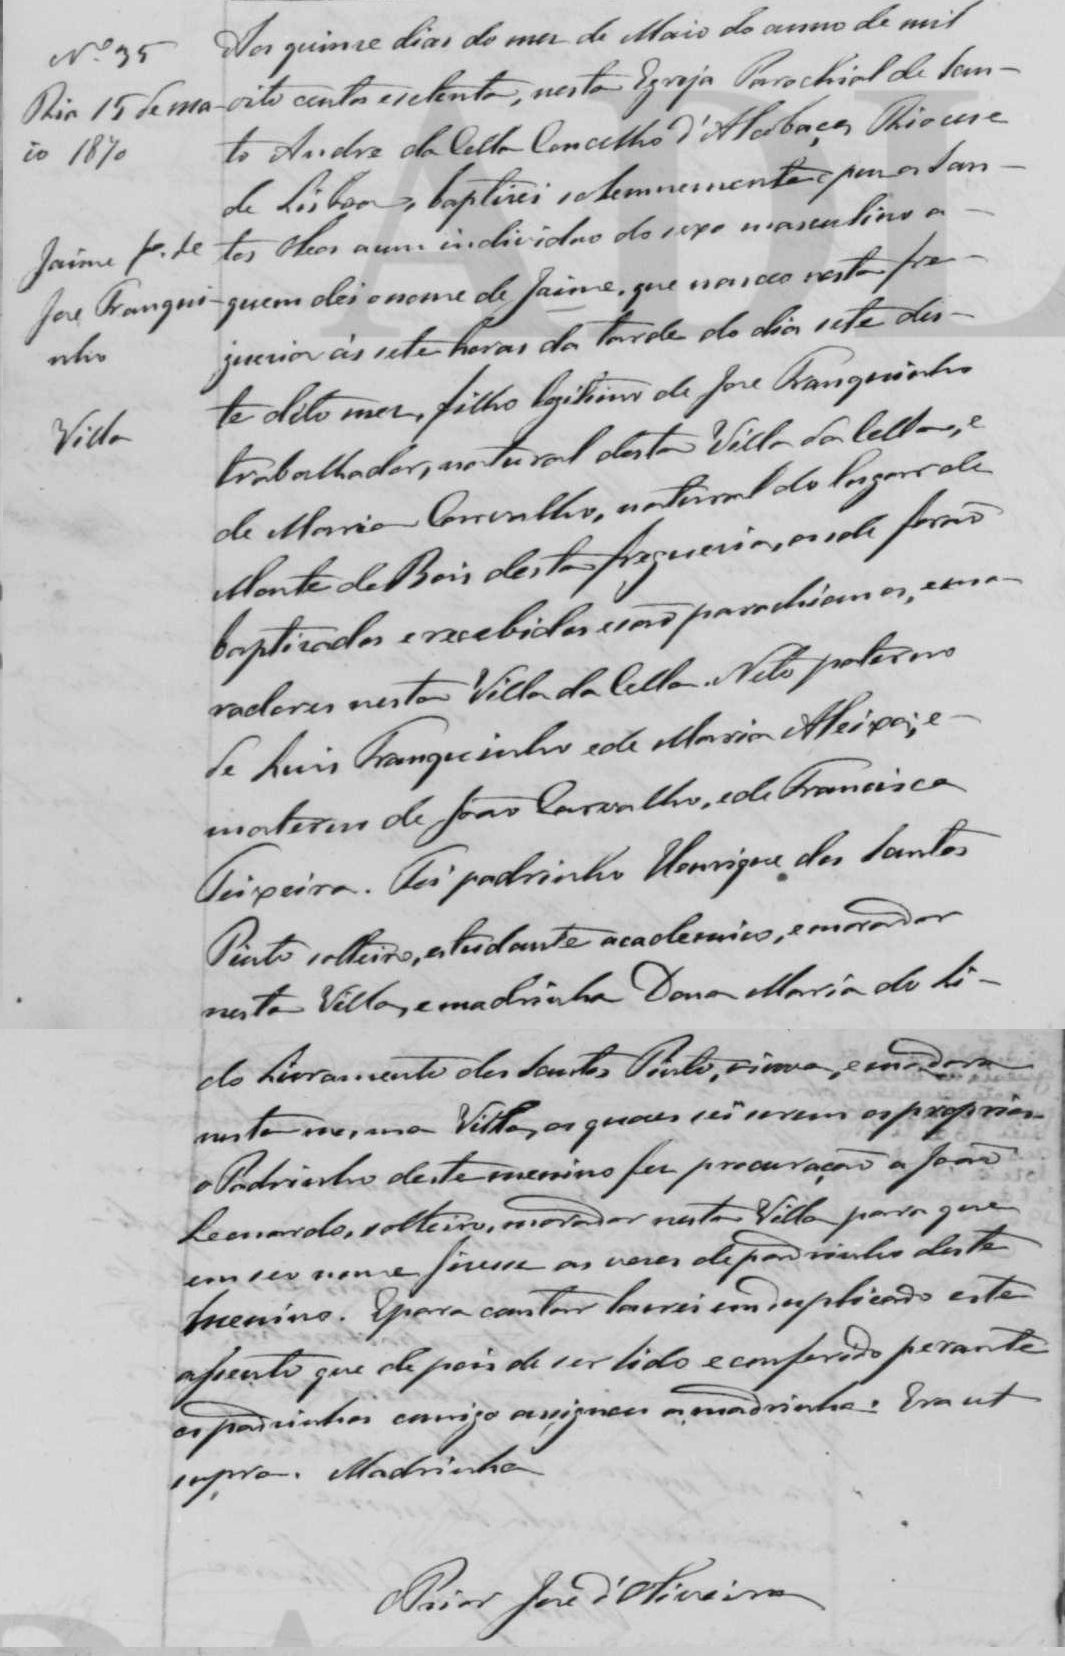 Nº 35
Dia 15 de ma-
io 1870
Jaime f. de
Jose Franqui-
nho
Villa
Aos quinze dias do mez de Maio do anno de mil
oito centos e setenta, nesta Egreja Parochial de San-
to Andre da Cella Concelho d'Alcobaça, Diocese
de Lisboa, baptizei solemnemente e puz os San-
tos Oleos a um individuo do sexo masculino a-
quem dei o nome de Jaime, que nasceo nesta fre-
guezia ás sete horas da tarde do dia sete des-
te dito mez, filho legitimo de Jose Franquinho
trabalhador, natural desta Villa da Cella, e
de Maria Carvalho, natural do logar de
Monte de Bois desta freguezia, onde forão
baptizados e recebidos e são parochianos, e mo-
radores nesta Villa da Cella. Neto paterno
de Luis Franquinho e de Maria Aleixa; e-
materno de João Carvalho, e de Francisca
Teixeira. Foi padrinho Henrique dos Santos
Pinto solteiro, estudante academico, e morador
nesta Villa, e madrinha Dona Maria do Li-
do Livramento dos Santos Pinto, viuva, e moradora
nesta mesma Villa, os quaes sei serem os proprios
o Padrinho deste menino fez procuração a João
Leonardo, solteiro, morador nesta Villa para que
em seu nome fizesse as vezes de padrinho deste
menino. E para constar lavrei em duplicado este
assento que depois de ser lido e conferido perante
os padrinhos comigo assignou a madrinha. Era ut
supra. Madrinha
O Prior José d'Oliveira